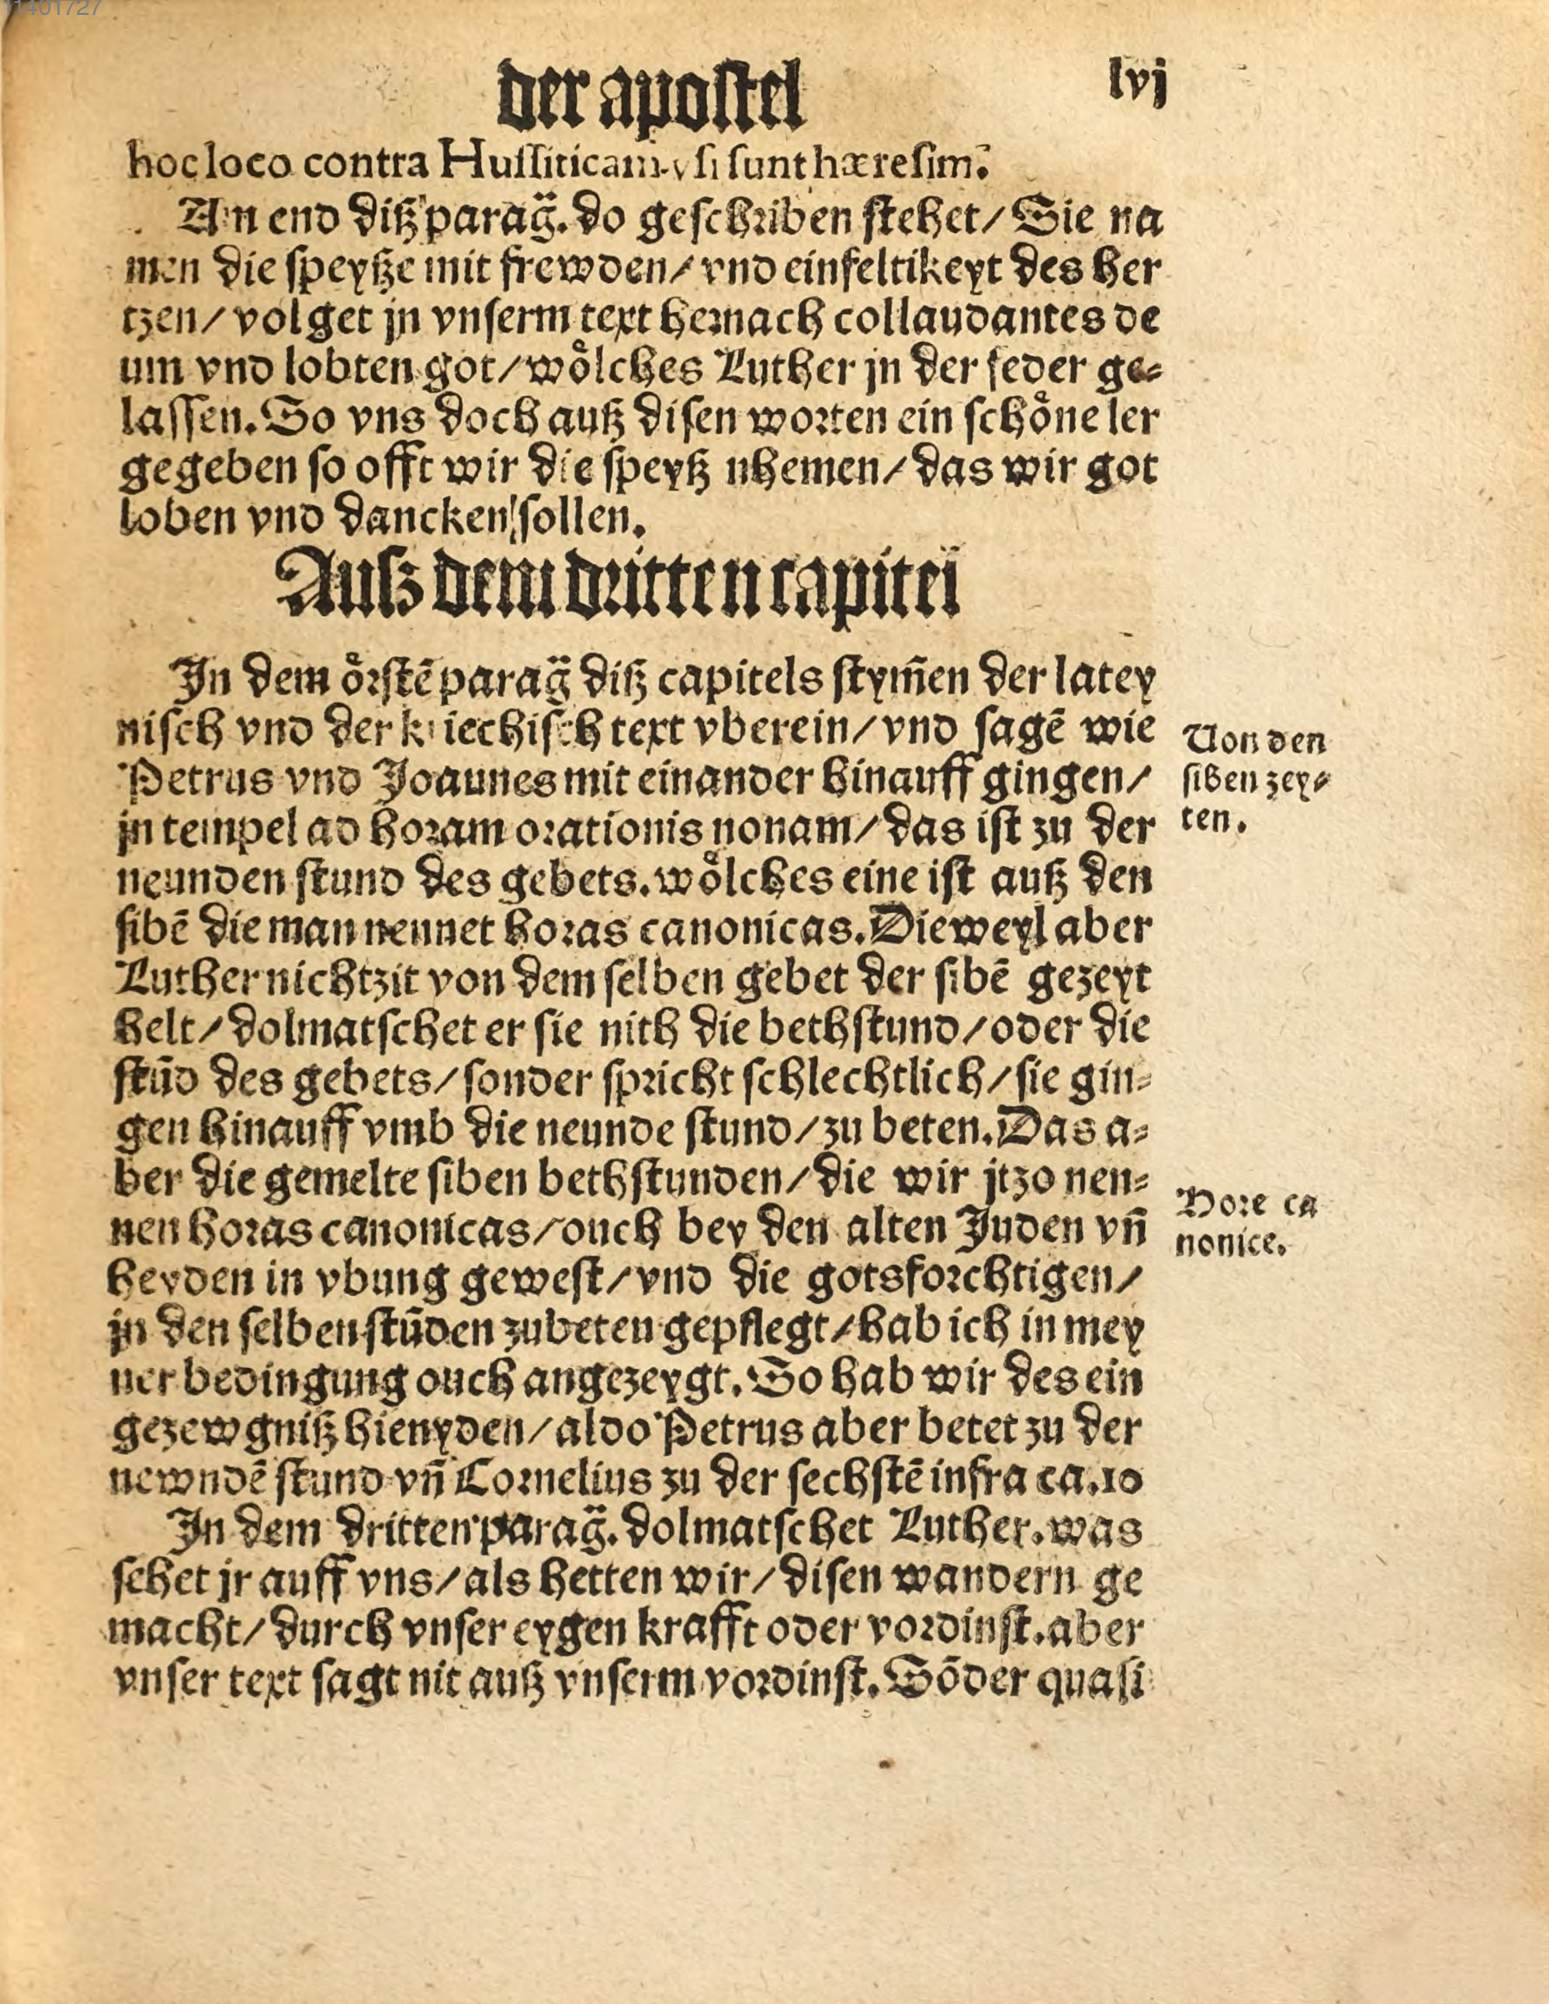 11401727
der apostel
lvj
hoc loco contra Hussiticam vsi sunt hæresim.
An end diß parag̃. do geschriben stehet/ Sie na
men die speyße mit frewden/ vnd einfeltikeyt des her
tzen/ volget jn vnserm text hernach collaudantes de
um vnd lobten got/ woͤlches Luther jn der feder ge⸗
lassen. So vns doch auß disen worten ein schoͤne ler
gegeben so offt wir die speyß nhemen/ das wir got
loben vnd dancken sollen.
Ausz dem dritten capitel
In dem oͤrstē parag̃ diß capitels stym̄en der latey
nisch vnd der kriechisch text vberein/ vnd sagē wie
Petrus vnd Joaunes mit einander hinauff gingen/
jn tempel ad horam orationis nonam/ das ist zu der
neunden stund des gebets. woͤlches eine ist auß den
sibē die man nennet horas canonicas. Dieweyl aber
Luther nichtzit von dem selben gebet der sibē gezeyt
helt/ dolmatschet er sie nith die bethstund/ oder die
stūd des gebets/ sonder spricht schlechtlich/ sie gin⸗
gen hinauff vmb die neunde stund/ zu beten. Das a⸗
ber die gemelte siben bethstunden/ die wir jtzo nen⸗
nen horas canonicas/ ouch bey den alten Juden vn̄
heyden in vbung gewest/ vnd die gotsforchtigen/
jn den selben stūden zubeten gepflegt/ hab ich in mey
ner bedingung ouch angezeygt. So hab wir des ein
gezewgniß hienyden/ aldo Petrus aber betet zu der
newndē stund vn̄ Cornelius zu der sechstē infra ca. 10
In dem dritten parag̃. dolmatschet Luther. was
sehet jr auff vns/ als hetten wir/ disen wandern ge
macht/ durch vnser eygen krafft oder vordinst. aber
vnser text sagt nit auß vnserm vordinst. Sōder quasi
Von den
siben zey⸗
ten.
Hore ca
nonice.